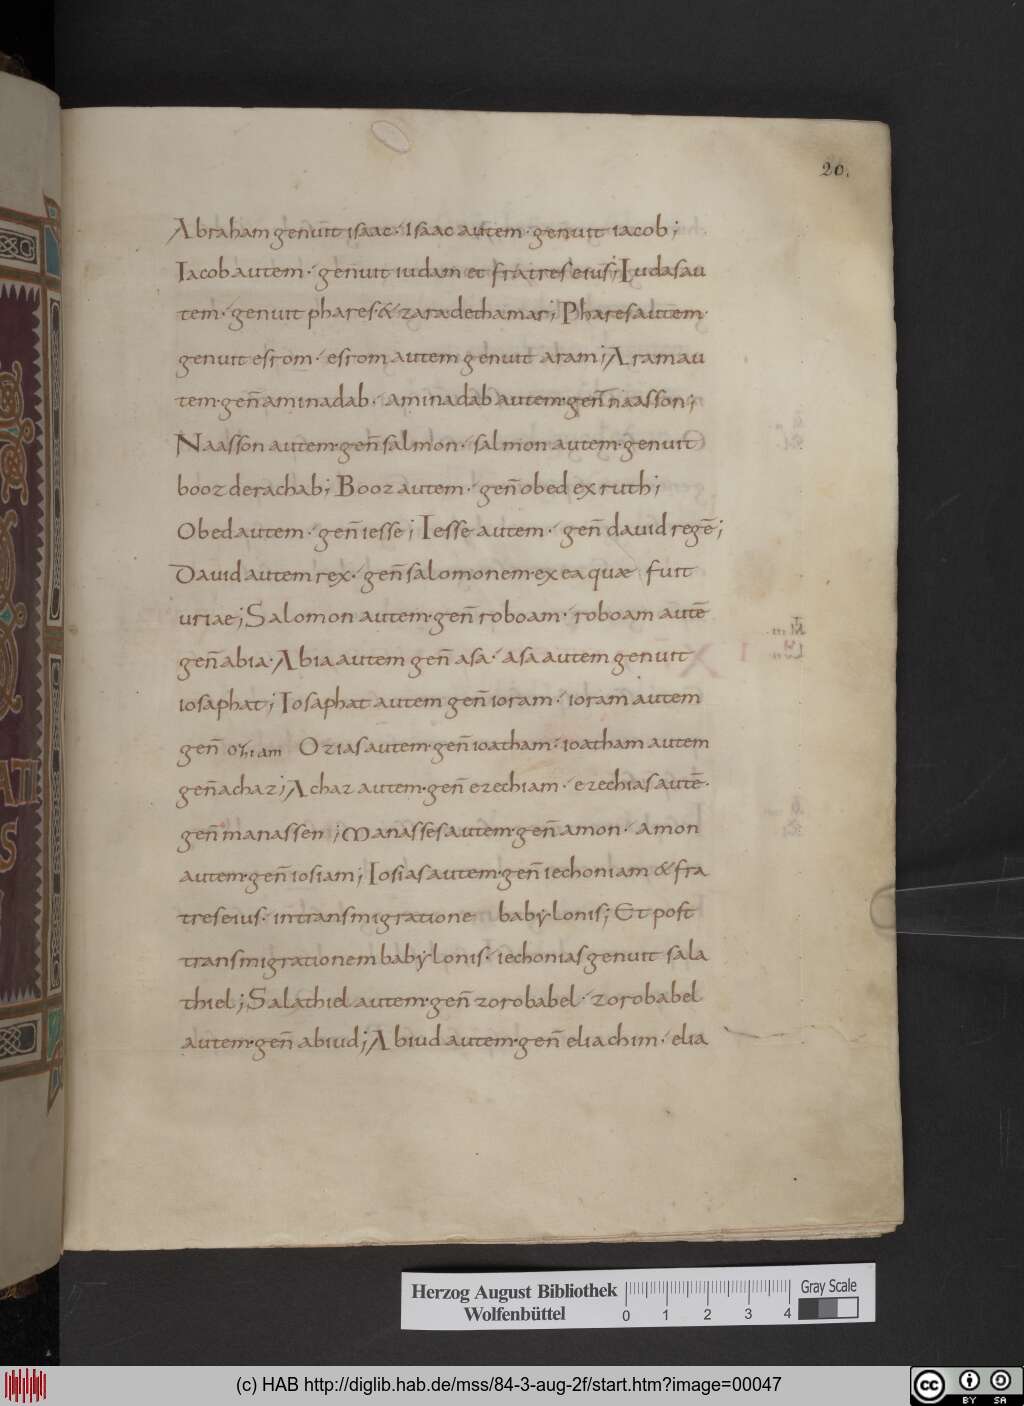 20.
Abraham genuit isaac· Isaac autem· genuit iacob;
Iacob autem· genuit iudam et fratres eius; Iudas au
tem· genuit phares & zara de thamar; Phares autem·
genuit esrom· esrom autem genuit aram; Aram au
tem· gen̄ aminadab· aminadab autem· gen̄ naasson;
Naasson autem· gen̄ salmon· salmon autem· genuit
booz de rachab; Booz autem· gen̄ obed ex ruth;
Obed autem· gen̄ iesse; Iesse autem· gen̄ dauid regē;
Dauid autem rex· gen̄ salomonem· ex ea quæ fuit
uriae; Salomon autem· gen̄ roboam· roboam autē
gen̄ abia· Abia autem gen̄ asa· asa autem genuit
iosaphat; Iosaphat autem gen̄ ioram· ioram autem
gen̄ Oziam Ozias autem· gen̄ ioatham· ioatham autem
gen̄ achaz; Achaz autem· gen̄ ezechiam· ezechias autē·
gen̄ manassen; Manasses autem· gen̄ amon· amon
autem· gen̄ iosiam; Iosias autem· gen̄ iechoniam & fra
tres eius· in transmigratione babẏlonis; Et post
transmigrationem babẏlonis· iechonias genuit sala
thiel; Salathiel autem· gen̄ zorobabel· zorobabel
autem· gen̄ abiud; Abiud autem· gen̄ eliachim· elia
AT
S
Herzog August Bibliothek
Wolfenbüttel
0 1 2 3 4
Gray Scale
(c) HAB http://diglib.hab.de/mss/84-3-aug-2f/start.htm?image=00047
cc BY SA